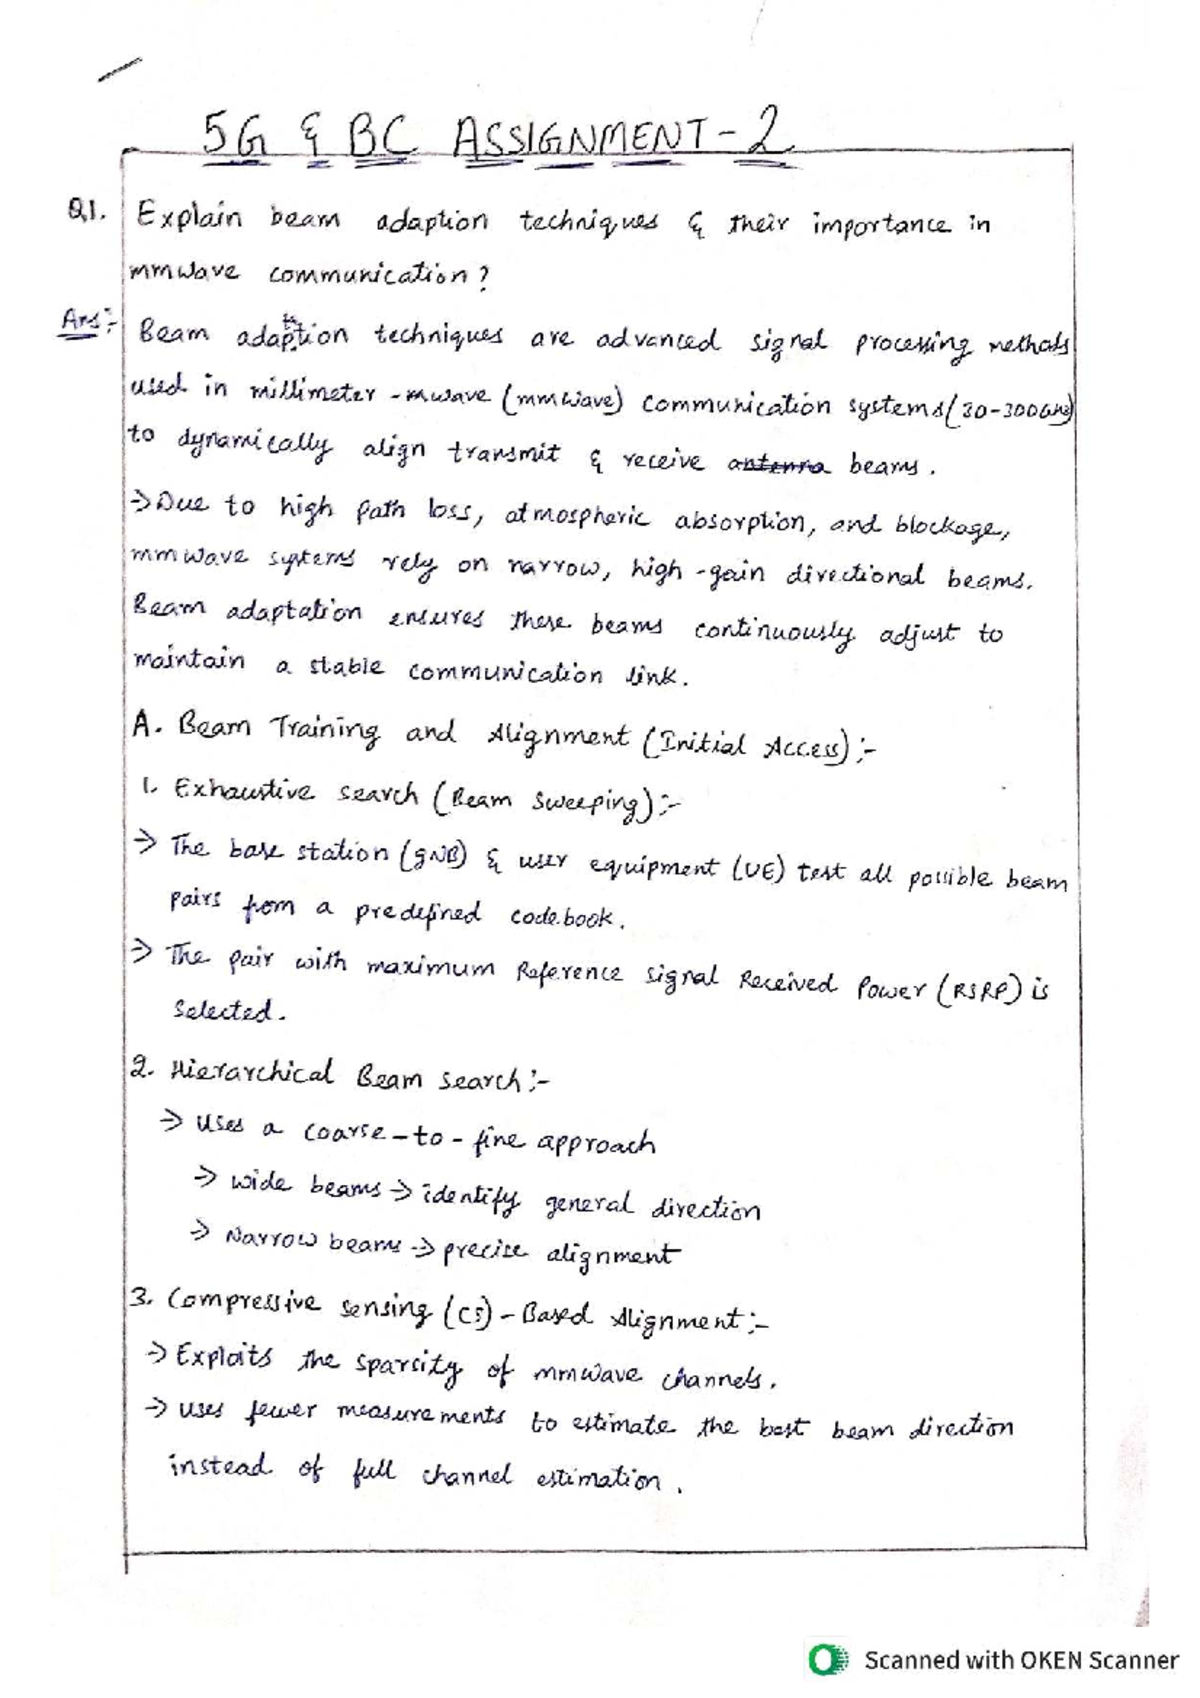 5G & BC ASSIGNMENT-2
Q1. Explain beam adaption techniques & their importance in
mmwave communication?
Ans:- Beam adaption techniques are advanced signal processing methods
used in millimeter-mwave (mmwave) communication systems (30-300GHz)
to dynamically align transmit & receive antenna beams.
→ Due to high path loss, atmospheric absorption, and blockage,
mmwave systems rely on narrow, high-gain directional beams.
Beam adaptation ensures these beams continuously adjust to
maintain a stable communication link.
A. Beam Training and Alignment (Initial Access):-
1. Exhaustive search (Beam Sweeping):-
→ The base station (gNB) & user equipment (UE) test all possible beam
pairs from a predefined codebook.
→ The pair with maximum Reference signal Received Power (RSRP) is
selected.
2. Hierarchical Beam search:-
→ Uses a coarse-to-fine approach
→ wide beams → identify general direction
→ Narrow beams → precise alignment
3. Compressive sensing (CS)-Based Alignment:-
→ Exploits the sparsity of mmwave channels.
→ uses fewer measurements to estimate the best beam direction
instead of full channel estimation.
Scanned with OKEN Scanner